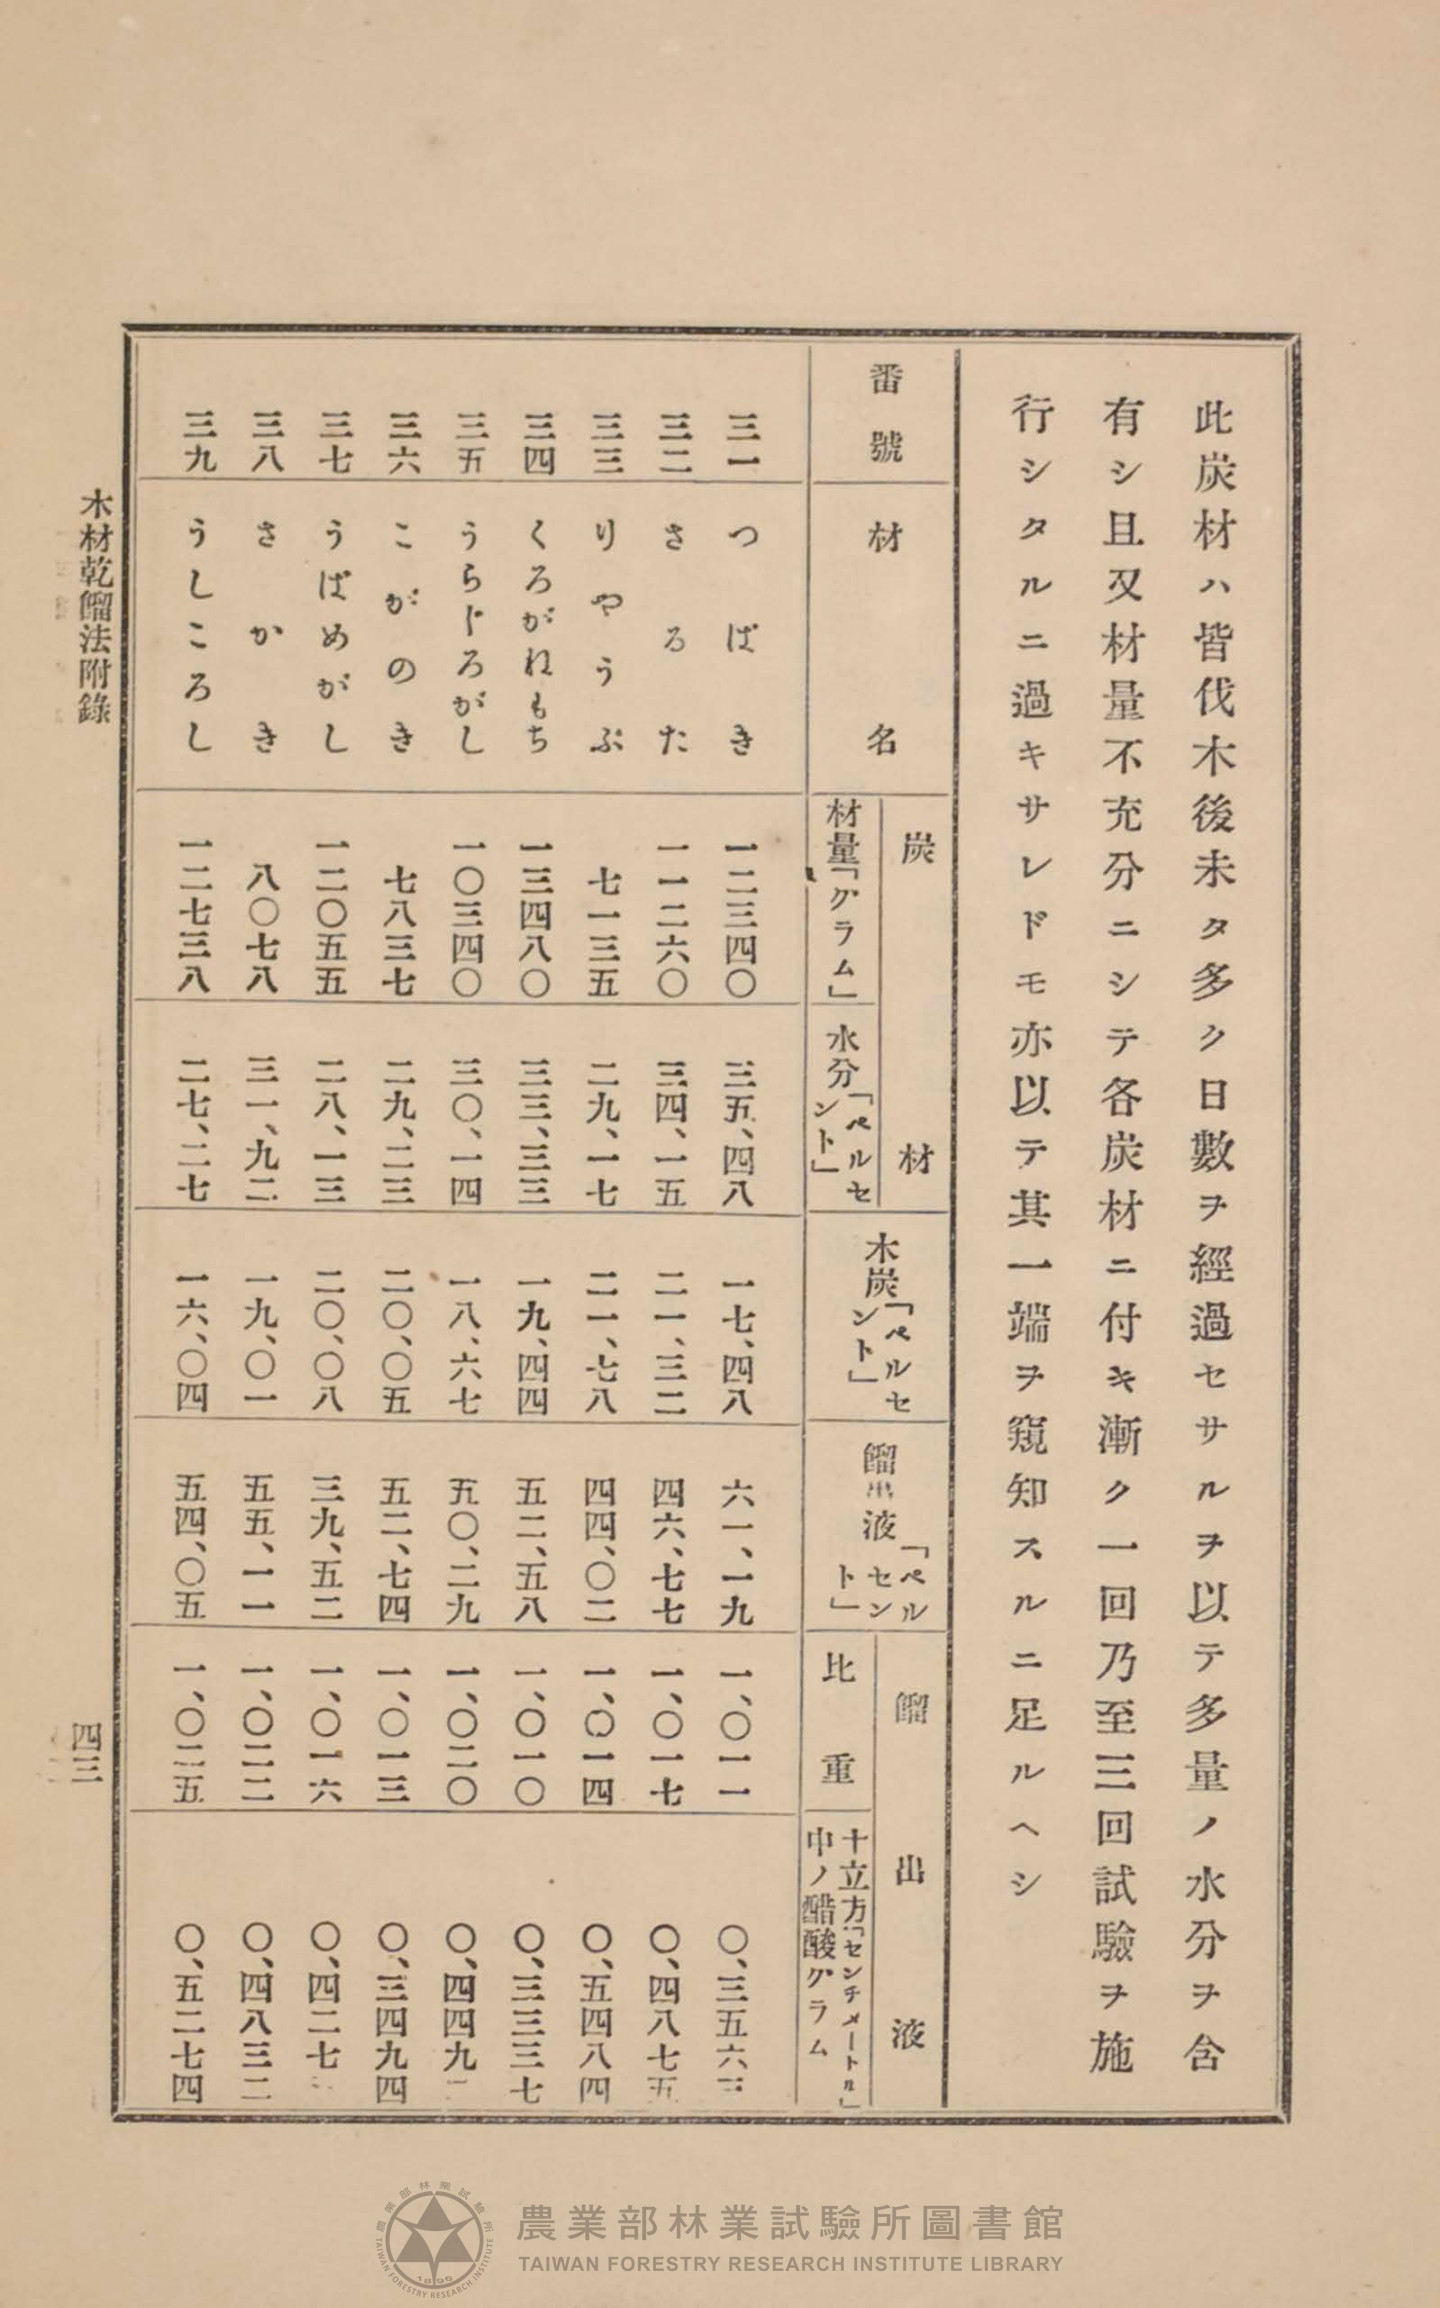 此炭材ハ皆伐木後未タ多ク日數ヲ經過セサルヲ以テ多量ノ水分ヲ含
有シ且又材量不充分ニシテ各炭材ニ付キ漸ク一回乃至三回試驗ヲ施
行シタルニ過キサレドモ亦以テ其一端ヲ窺知スルニ足ルヘシ
番號
材名
炭材
材量「グラム」
水分「ペルセント」
木炭「ペルセント」
餾出液「ペルセント」
餾出液
比重
十立方「センチメートル」
中ノ醋酸グラム
三一 つばき 一二三四〇 三五、四八 一七、四八 六一、一九 一、〇一一 〇、三五六三
三二 さるた 一一二六〇 三四、一五 二一、三二 四六、七七 一、〇一七 〇、四八七五
三三 りやうぶ 七一三五 二九、一七 二一、七八 四四、〇二 一、〇一四 〇、五四八四
三四 くろがねもち 一三四八〇 三三、三三 一九、四四 五二、五八 一、〇一〇 〇、三三三七
三五 うらじろがし 一〇三四〇 三〇、一四 一八、六七 五〇、二九 一、〇二〇 〇、四四九
三六 こがのき 七八三七 二九、二三 二〇、〇五 五二、七四 一、〇一三 〇、三四九四
三七 うばめがし 一二〇五五 二八、一三 二〇、〇八 三九、五二 一、〇一六 〇、四二七
三八 さかき 八〇七八 三一、九二 一九、〇一 五五、一一 一、〇二二 〇、四八三二
三九 うしころし 一二七三八 二七、二七 一六、〇四 五四、〇五 一、〇二五 〇、五二七四
木材乾餾法附錄
四三
農業部林業試驗所圖書館
TAIWAN FORESTRY RESEARCH INSTITUTE LIBRARY
農業部林業試驗所
TAIWAN FORESTRY RESEARCH INSTITUTE
1896